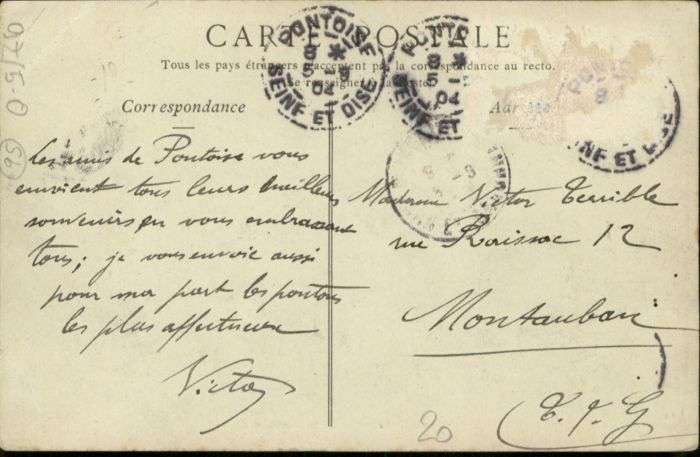 CARTE POSTALE
Tous les pays étrangers n'acceptent pas la correspondance au recto.
se renseigner à la
Correspondance
Les amis de Pontoise vous
envoient tous leurs meilleurs
souvenirs en vous embrassant
tous; je vous envoie aussi
pour ma part les
les plus affectueux
Victor
Madame Victor Terrible
rue Roissac 12
Montauban
T. & G
PONTOISE
8
5 -9
04
SEINE ET OISE
PONTOISE
04
SEINE ET
PONT
9
SEINE ET OISE
0-5/70
95
20